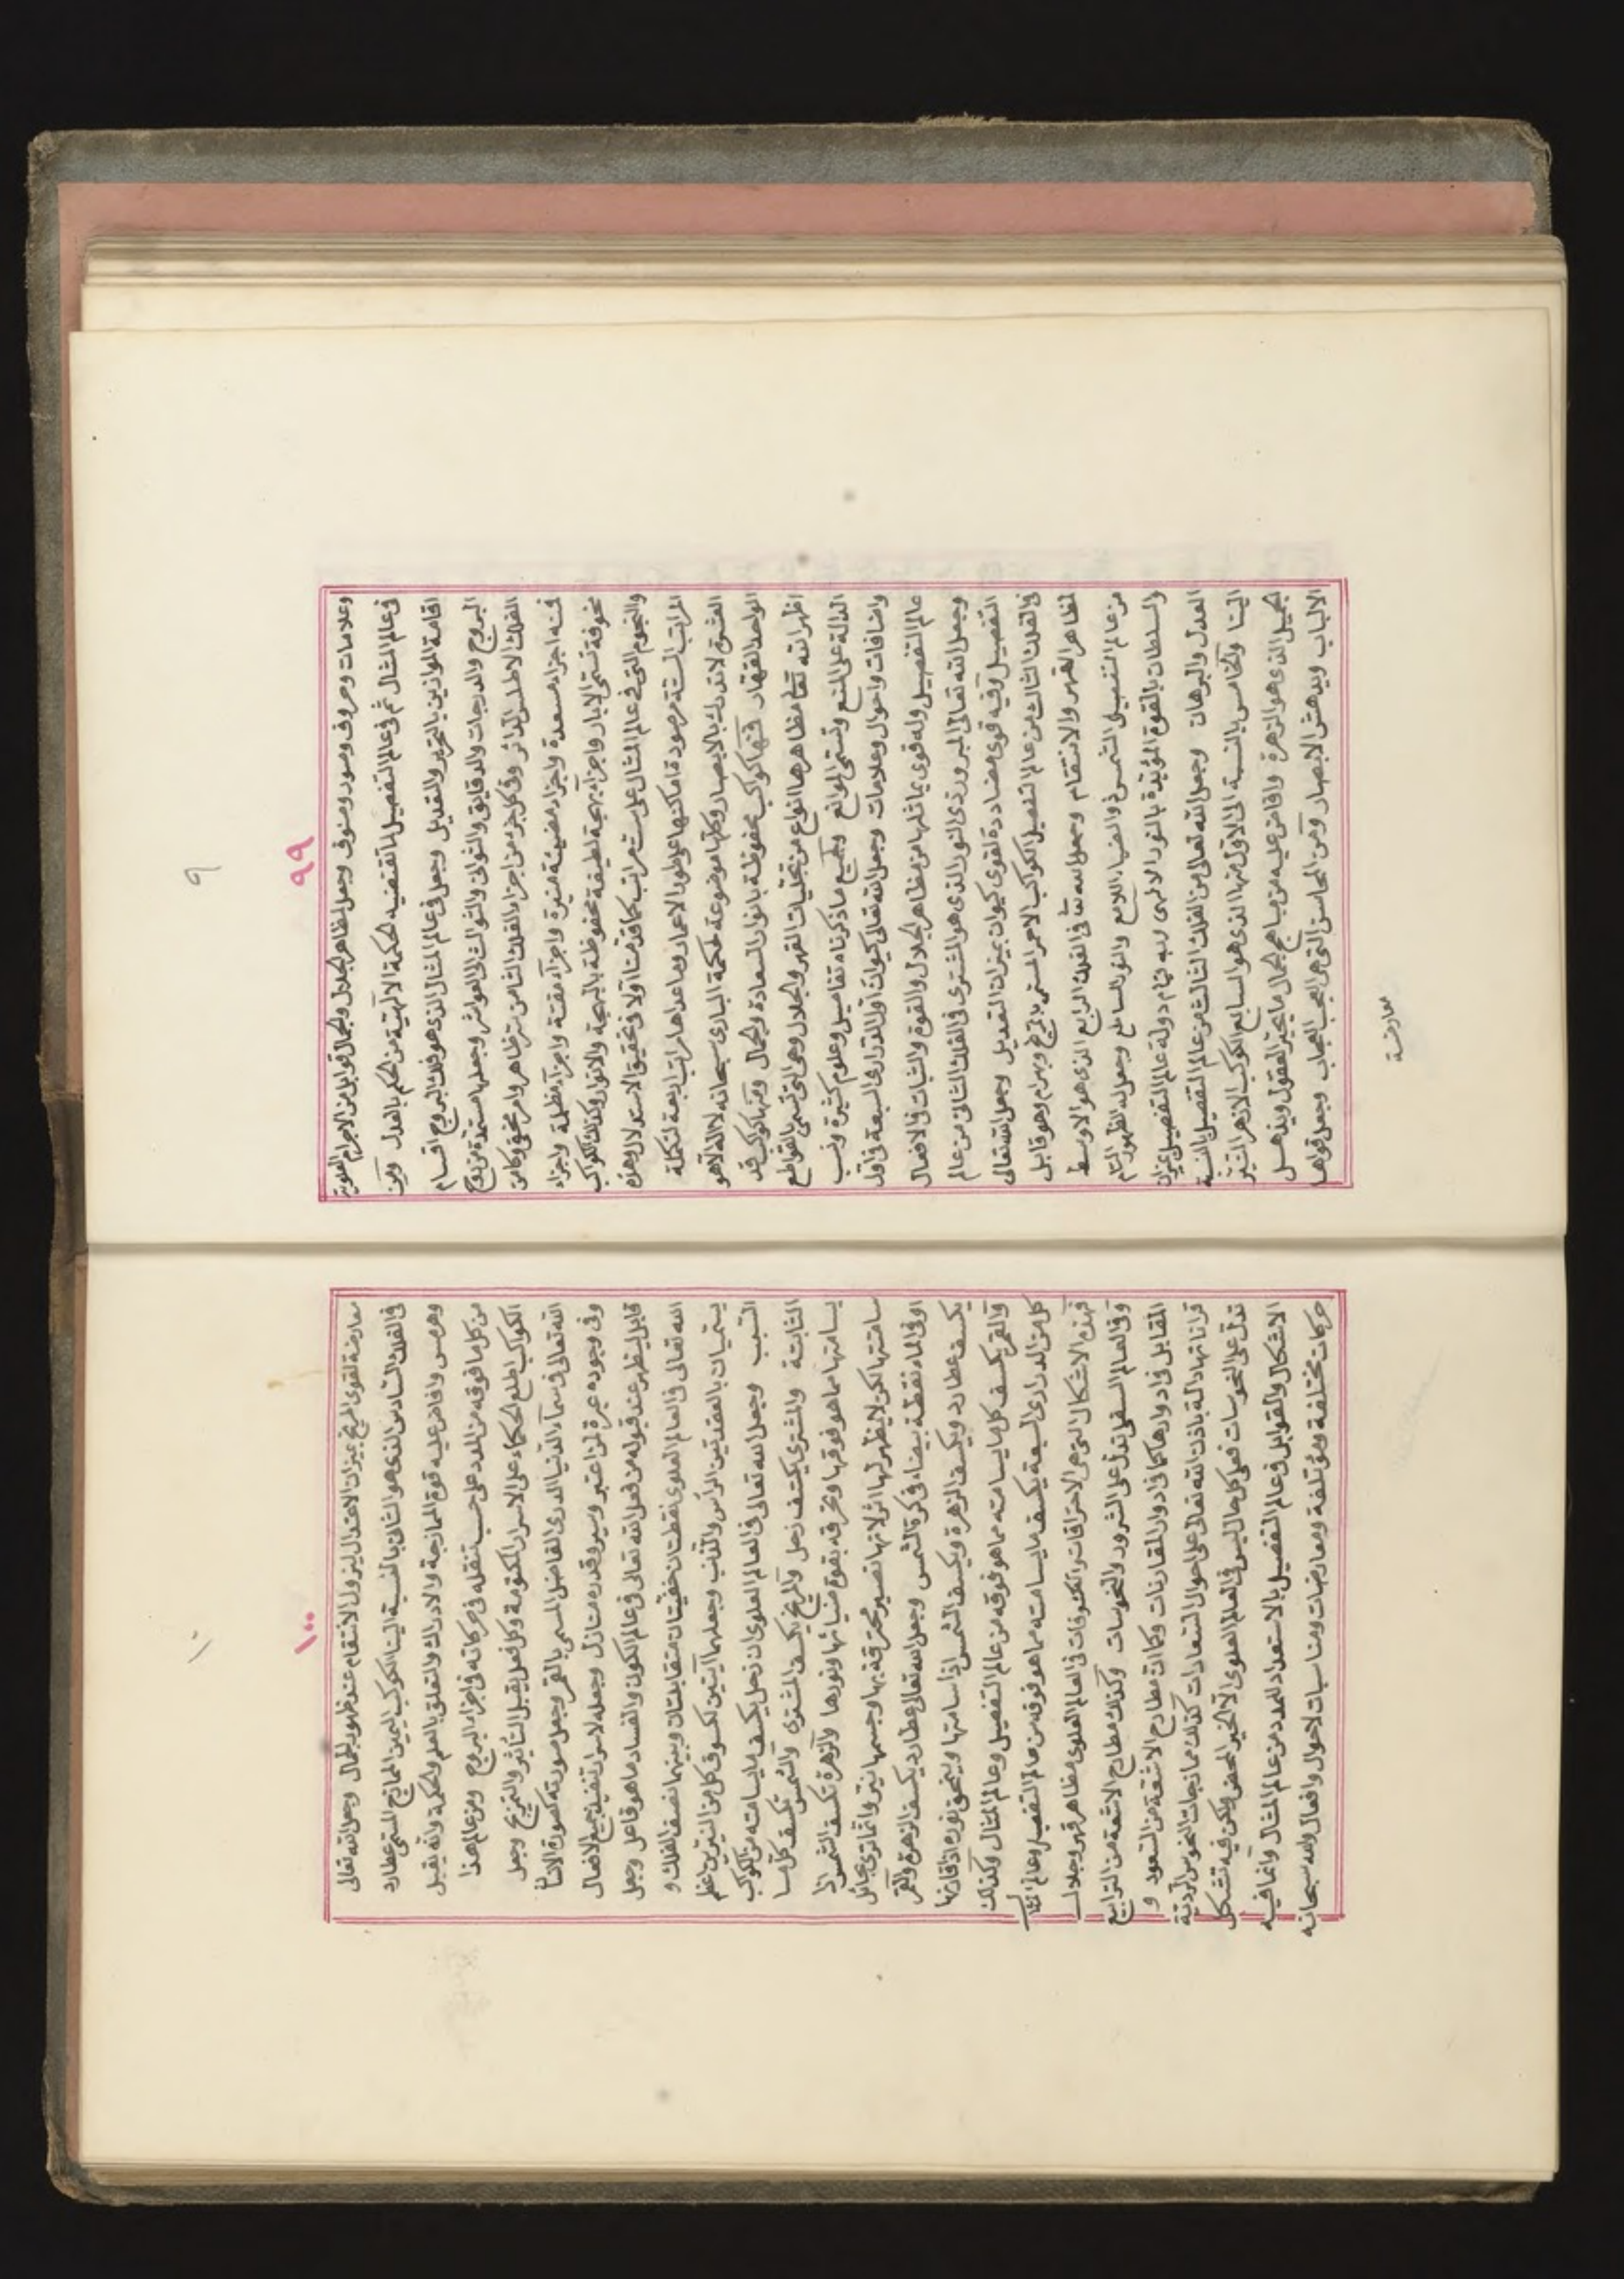 ٩
٩٩
وعلامات وحروف وصور وصنوف وجعل لمظاهر الجلال والجمال قوابل من الاجرام العلوية
في عالم المثال ثم في عالم التفصيل ما تقتضيه الحكمة الالهية من الحكم بالعدل ومن
اقامة الموازين بالتحرير والتعديل وجعل في عالم المثال الذي هو فلك البروج اقسام
البروج والدرجات والدقايق والثواني والثوالث الى العواشر وجعلها مستمدة من روح
الفلك الاطلس الدائر وفي كل جزء من اجزاء الفلك الثامن سر ظاهر وامر مخفي وكامن
فمنه اجزاء مسعدة واجزاء مضيئة منيرة واجزاء مقتمة واجزاء مظلمة واجزاء
مخوفة تسمى الابار واجزاء بهجة لطيفة محفوظة بالبهجة والانوار وكذلك الكواكب
والنجوم التي في عالم المثال على ست مراتب كما قدمنا اولا في تحقيق الاستدلال وهذه
المراتب الستة مرصودة اماكنها عروضا وطولا الاعمار وما عداها مراتب اربعة لتكملة
العشرة لا تدرك بالابصار وكلها موضوعة لحكمة الباري سبحانه لا اله الا هو
الواحد القهار فمنها كواكب محفوظة بانوار السعادة والجمال ومنها كواكب قد
اظهر الله تعالى مظاهرها انواع من تجليات القهر والجلال وهي التي تسمى بالقواطع
الدالة على المنع وتسمى الموانع ولجميع ما ذكرناه تفاصيل وعلوم كثيرة ونسب
واضافات واحوال وعلامات وجعل الله تعالى كيوان اول الدراري السبعة في اول
عالم التفصيل وله قوى يماثلها من مظاهر الجلال والقوة والثبات في الافعال
وجعل الله تعالى المبرور ذي النور الذي هو المشتري في الفلك الثاني من عالم
التفصيل وفيه قوى مضاددة لقوى كيوان بميزان التعديل وجعل الله تعالى
في الفلك الثالث من عالم التفصيل الكواكب الاحمر المسمى بالمريخ وبهرام وهو قابل
لمظاهر القهر والانتقام وجعل الله تعالى في الفلك الرابع الذي هو الاوسط
من عالم التفصيل الشمس ذو الضياء اللامع والنور الساطع وجعل له الظهور التام
والسلطان بالقوة المؤيدة بالنور الالهي وبه قيام دولة عالم التفصيل بميزان
العدل والبرهان وجعل الله تعالى من الفلك الثالث من عالم التفصيل بالنسبة
الينا والخامس بالنسبة الى الاول منها الذي هو السابع الكوكب الازهر المنير
الجميل الذي هو الزهرة وافاض عليه من مباهج الجمال ما يحير العقول ويذهل
الالباب ويدهش الابصار ومن المحاسن التي هي العجب العجاب وجعل قواها
معارضة
١٠
١٠٠
معارضة لقوى المريخ بميزان الاعتدال ليزول الانتقام عند ظهور الجمال وجعل الله تعالى
في الفلك السادس الذي هو الثاني بالنسبة الينا الكوكب اليمين الممازج المسمى عطارد
وهرمس وافاض عليه قوة الممازجة والادراك والتعلق بالعلم والحكمة وانه يقبل
من كل ما فوقه من المدد على حسب تنقله في حركاته في اجزاء البروج ومن عالم هذا
الكواكب اطلع الحكماء على الاسرار المكتومة وكل فعل يقبل التأثير والتمزيج وجعل
الله تعالى في سماء الدنيا الدري الفاضل المسمى بالقمر وجعل صورته كصورة الانسان
وفي وجوده عبرة لمن اعتبر وسيره قدره منازل وجعله لاسرار تنفيذ جميع الافعال
قابل ليظهر عند قبوله من فعل الله تعالى في عالم الكون والفساد ما هو فاعل وجعل
الله تعالى في العالم العلوي نقطتان خفيتان متقابلتان وبينهما نصف الفلك و
يسميان بالعقدتين الرأس والذنب وجعلهما آيتين لكسوف كل من النيرين اعظم
السبب وجعل الله تعالى في العالم العلوي ان زحل يكسف ما يسامته من الكواكب
الثابتة والمشتري يكسف زحل والمريخ يكسف المشتري والشمس تكسف كل ما
يسامتها مما هو فوقها وتحرقه بقوة ضيائها ونورها والزهرة تكسف الشمس اذا
سامتتها لكن لا يظهر لها اثر لانها تصير محترقة بها وجسمها نير وانما ترى بحائل
او في الماء نقطة بيضاء في كرة الشمس وجعل الله تعالى عطارد يكسف الزهرة والقمر
يكسف عطارد ويكسف الزهرة ويكسف الشمس اذا سامتها ويتحقق نوره اذا قارنها
والقمر يكسف كل ما يسامته مما هو فوقه من عالم التفصيل وعالم المثال وكذلك
كل من الدراري السبعة يكسف ما يسامته مما هو فوقه من عالم التفصيل وعالم المثال
فهذه الاشكال التي هي الاحتراقات والكسوفات في العالم العلوي مظاهر قهر وجلال
وفي العالم السفلي تدل على الشرور والنحوسات وكذلك مطارح الاشعة من الترابيع
المقابل في ادوارها كما في ادوار المقارنات وكما ان مطارح الاشعة من السعود و
قراناتها دالة باذن الله تعالى على احوال السعادات كذلك ممازجات النحوس الردية
تدل على النحوسات فعلى كل حال ليس في العالم العلوي الا الخير المحض ولكن فيه تشكل
الاشكال والقوابل في عالم التفصيل بالاستعداد للمدد من عالم المثال وانما فيه
حركات مختلفة ومؤتلفة ومعارضات ومناسبات لاحوال وافعال والله سبحانه